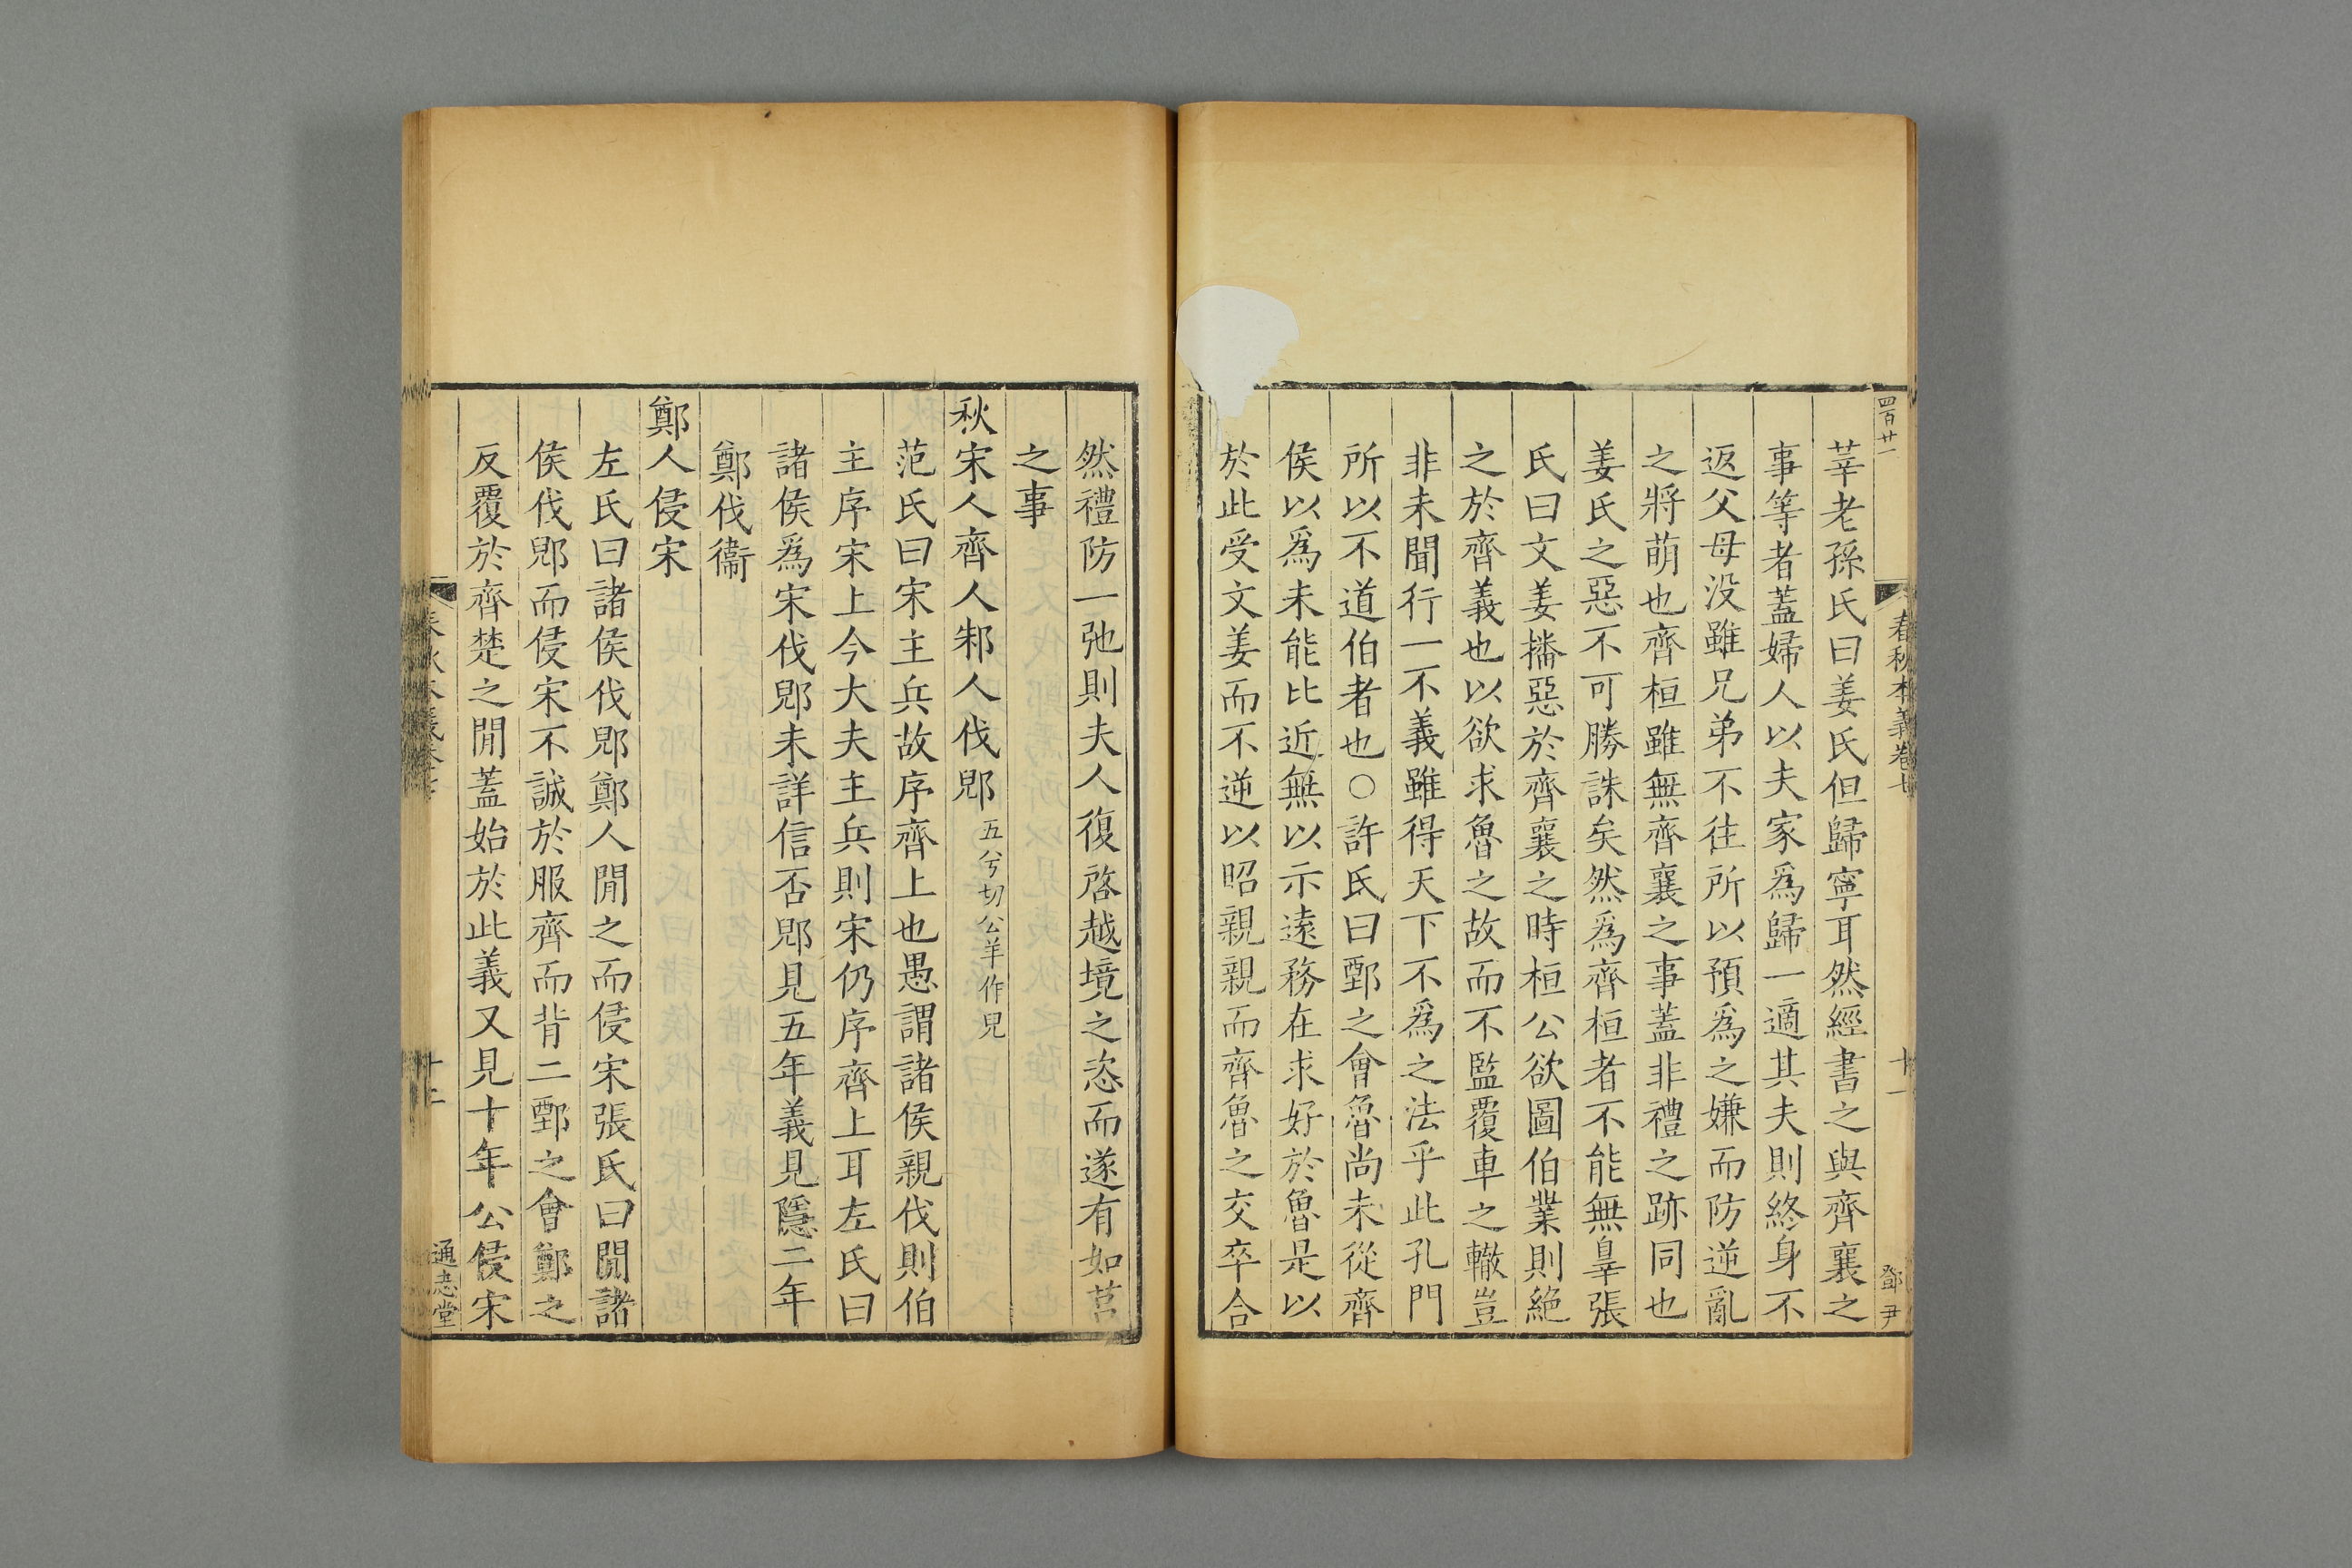 四百廿一
春秋本義卷七
十一
鄧尹
莘老孫氏曰姜氏但歸寧耳然經書之與齊襄之
事等者蓋婦人以夫家爲歸一適其夫則終身不
返父母没雖兄弟不往所以預爲之嫌而防逆亂
之將萌也齊桓雖無齊襄之事蓋非禮之跡同也
姜氏之惡不可勝誅矣然爲齊桓者不能無辠張
氏曰文姜播惡於齊襄之時桓公欲圖伯業則絕
之於齊義也以欲求魯之故而不監覆車之轍豈
非未聞行一不義雖得天下不爲之法乎此孔門
所以不道伯者也○許氏曰鄄之會魯尚未從齊
侯以爲未能比近無以示遠務在求好於魯是以
於此受文姜而不逆以昭親親而齊魯之交卒合
然禮防一弛則夫人復啓越境之恣而遂有如莒
之事
秋宋人齊人邾人伐郳五兮切公羊作兒
范氏曰宋主兵故序齊上也愚謂諸侯親伐則伯
主序宋上今大夫主兵則宋仍序齊上耳左氏曰
諸侯爲宋伐郳未詳信否郳見五年義見隱二年
鄭伐衞
鄭人侵宋
左氏曰諸侯伐郳鄭人閒之而侵宋張氏曰閒諸
侯伐郳而侵宋不誠於服齊而背二鄄之會鄭之
反覆於齊楚之閒蓋始於此義又見十年公侵宋
通志堂